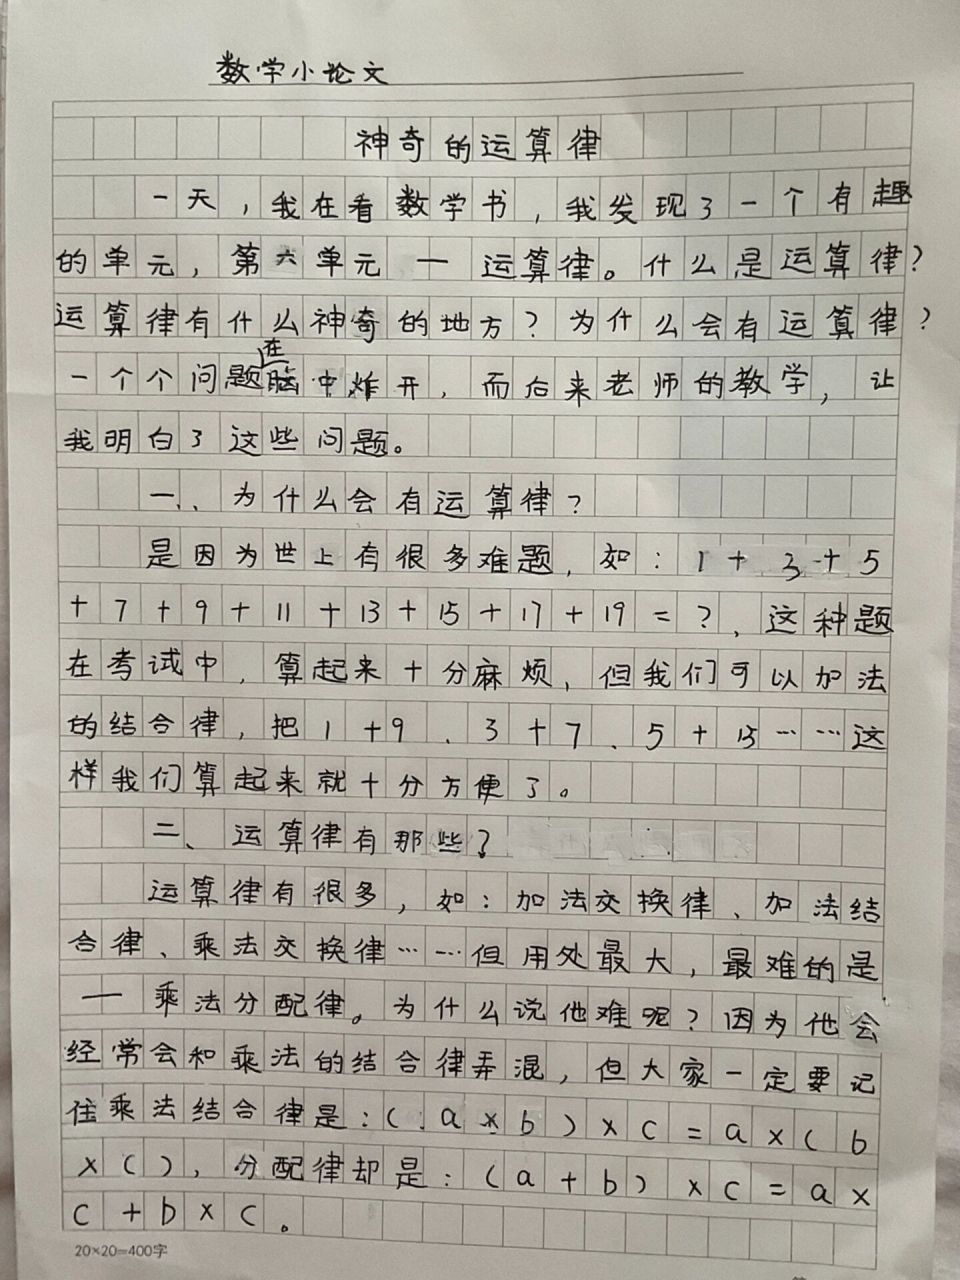 数学小论文
神奇的运算律
一天，我在看数学书，我发现了一个有趣
的单元，第六单元 — 运算律。什么是运算律？
运算律有什么神奇的地方？为什么会有运算律？
一个个问题在脑中炸开，而后来老师的教学，让
我明白了这些问题。
一、为什么会有运算律？
是因为世上有很多难题，如：1+3+5
+7+9+11+13+15+17+19=？，这种题
在考试中，算起来十分麻烦，但我们可以加法
的结合律，把1+9、3+7、5+15……这
样我们算起来就十分方便了。
二、运算律有那些？
运算律有很多，如：加法交换律、加法结
合律、乘法交换律……但用处最大，最难的是
— 乘法分配律。为什么说他难呢？因为他会
经常会和乘法的结合律弄混，但大家一定要记
住乘法结合律是：(a×b)×c=a×(b
×c)，分配律却是：(a+b)×c=a×
c+b×c。
20×20=400字